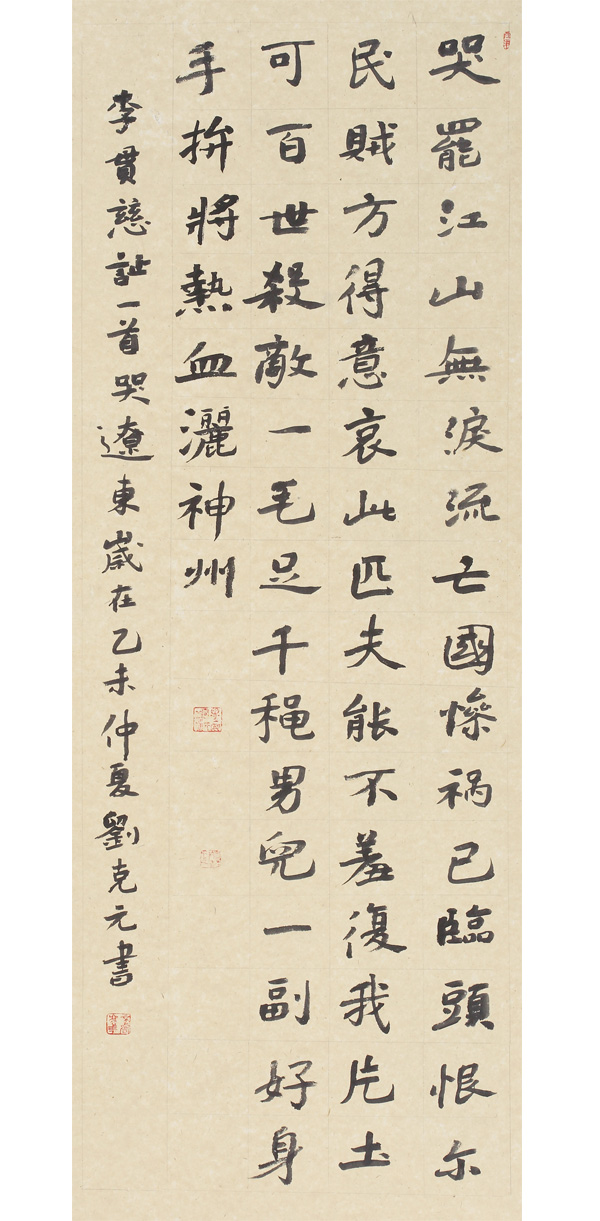 哭罷江山無淚流亡國慘祸已臨頭恨尔
民賊方得意哀此匹夫能不羞復我片土
可百世殺敵一毛足千穐男兒一副好身
手拚將熱血灑神州
李貫慈詩一首哭遼東歲在乙未仲夏劉克元書